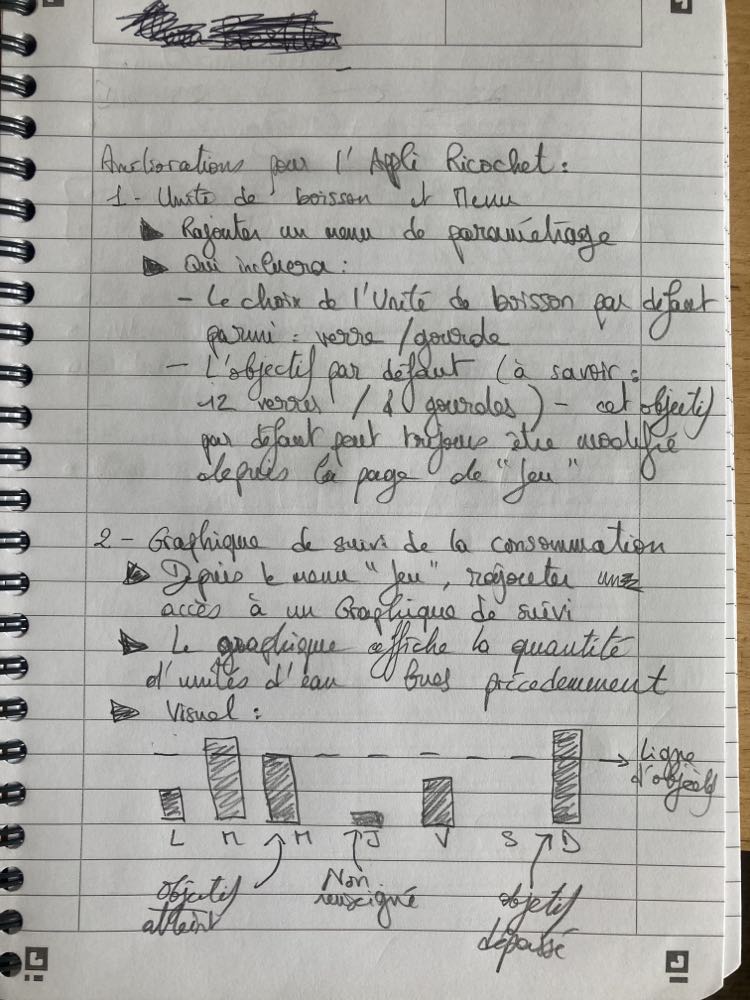 Améliorations pour l'Appli Ricochet :
1 - Unité de boisson et Menu
Rajouter un menu de paramétrage
Qui incluera :
- Le choix de l'Unité de boisson par défaut
parmi : verre / gourde
- L'objectif par défaut (à savoir :
12 verres / gourdes) - cet objectif
par défaut peut toujours être modifié
depuis la page de "Jeu"
2 - Graphique de suivi de la consommation
Dpuis le menu "Jeu", rajouter un
accès à un Graphique de suivi
Le graphique affiche la quantité
d'unités d'eau bues précedemment
Visuel :
Ligne
d'objectif
L M M J V S D
objectif
atteint
Non
renseigné
objetif
dépassé